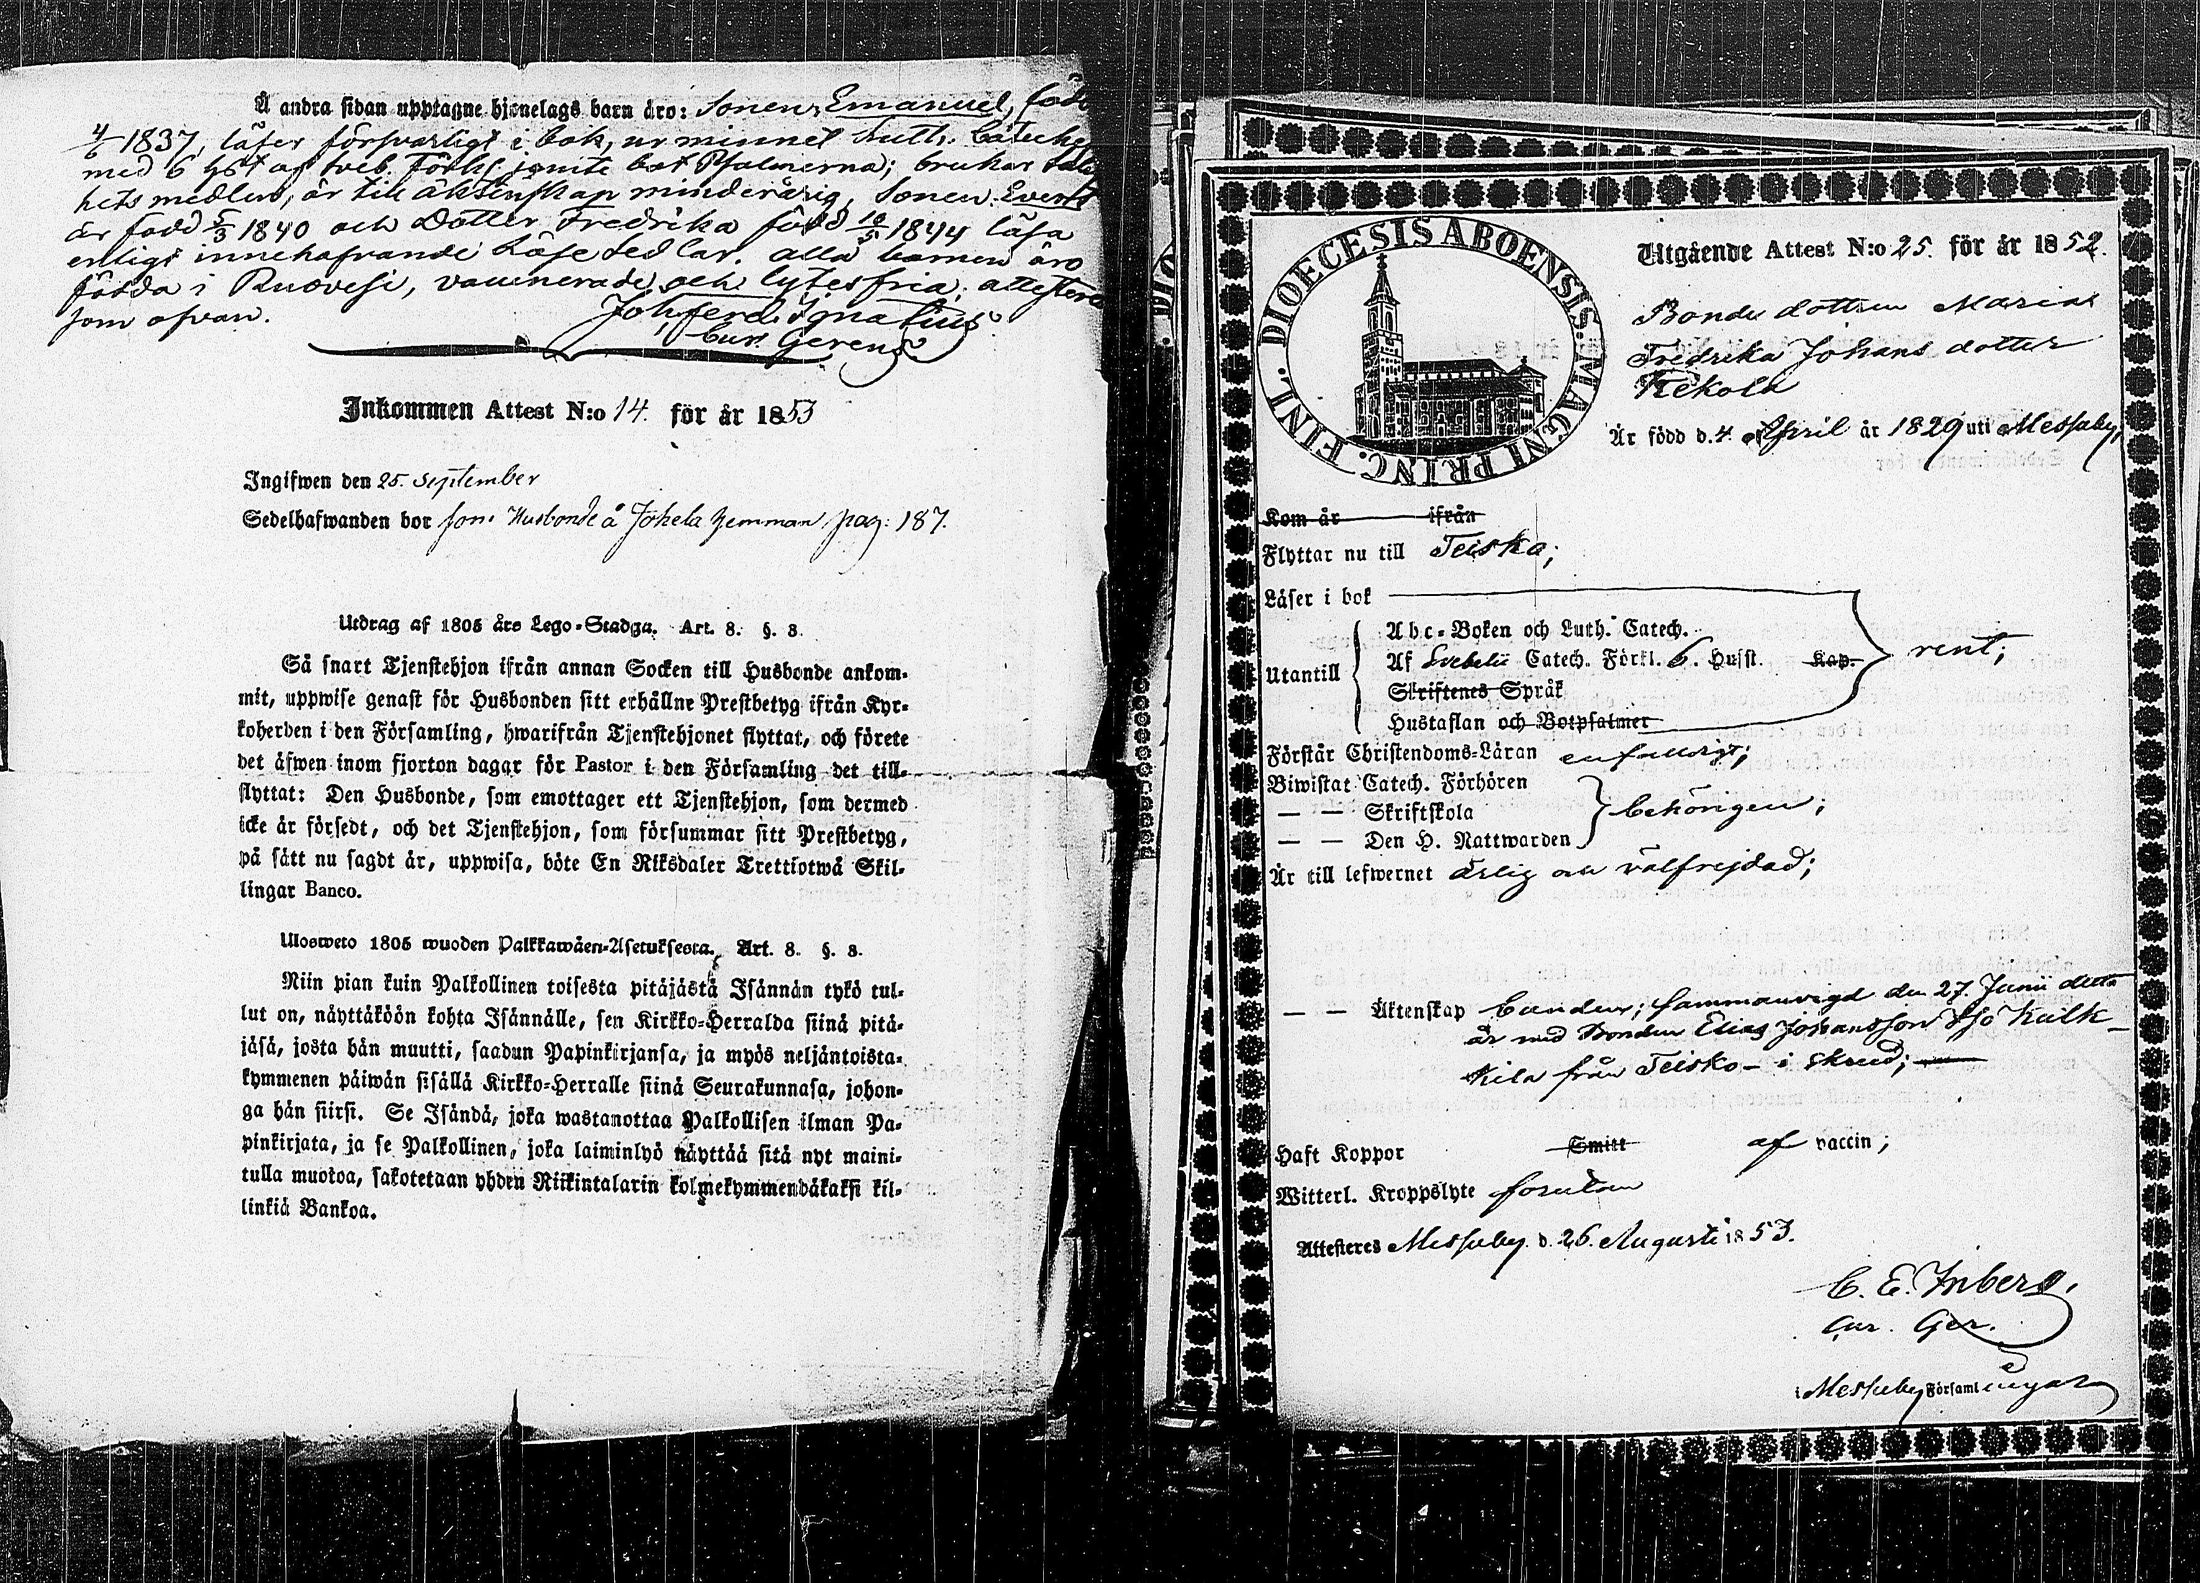 Å andra sidan upptagne hjonelags barn äro: Sonen, Emanuel, född
4/6 1837, läser försvarligt i bok, ur minnet Luth. Cateches
med 6 hst af Sveb. Förkl. jemte bot Psalmerna; brukar salig
hets medlen, är till äktenskap minderårig, Sonen Evert
är född 5/3 1840 och Dotter Fredrika född 10/5 1844 läsa
enligt innehafvande Läse sedlar. alla barnen äro
födda i Ruovesi, vaccinerade och lytesfria; attestera
som ofvan.
Joh. Ferd. Ignatius
Cur. Gerens
Inkommen Attest N:o 14. för år 1853
Ingifwen den 25. September
Sedelhafwanden bor som Husbonde å Jokela hemman pag: 187.
Utdrag af 1805 års Lego-Stadga. Art. 8. §. 8.
Så snart Tjenstehjon ifrån annan Socken till Husbonde ankom-
mit, uppwise genast för Husbonden sitt erhållne Prestbetyg ifrån Kyr-
koherden i den Församling, hwarifrån Tjenstehjonet flyttat, och förete
det äfwen inom fjorton dagar för Pastor i den Församling det till-
flyttat: Den Husbonde, som emottager ett Tjenstehjon, som dermed
icke är försedt, och det Tjenstehjon, som försummar sitt Prestbetyg,
på sätt nu sagdt är, uppwisa, böte En Riksdaler Trettiotwå Skil-
lingar Banco.
Ulosweto 1805 wuoden Palkkawäen-Asetuksesta. Art. 8. §. 8.
Niin pian kuin Palkollinen toisesta pitäjästä Isännän tykö tul-
lut on, näyttäköön kohta Isännälle, sen Kirkko-Herralda siinä pitä-
jäsä, josta hän muutti, saadun Papinkirjansa, ja myös neljäntoista-
kymmenen päiwän sisällä Kirkko-Herralle siinä Seurakunnasa, johon-
ga hän siirsi. Se Isändä, joka wastanottaa Palkollisen ilman Pa-
pinkirjata, ja se Palkollinen, joka laiminlyö näyttää sitä nyt maini-
tulla muotoa, sakotetaan yhden Riikintalarin kolmekymmendäkaksi kil-
linkiä Bankoa.
DIOECESIS ABOENSIS. MAGNI PRINC. FINL.
Utgående Attest N:o 25. för år 1852.
Bonde dottren Maria
Fredrika Johans dotter
Kekola
Är född d. 4. April år 1829 uti Messuby,
Kom år ifrån
Flyttar nu till Teisko;
Läser i bok
Utantill
Abc-Boken och Luth. Catech.
Af Svebelii Catech. Förkl. 6. Husst. Kap.
Skriftenes Språk
Hustaflan och Botpsalmer
rent;
Förstår Christendoms-Läran enfaldigt;
Biwistat Catech. Förhören
— — Skriftskola
— — Den H. Nattwarden
behörigen;
Är till lefwernet ärlig och välfrejdad;
— — Äktenskap bunden; sammanvigd den 27. Junii detta
år med Bonden Elias Johansson Iso Kulk-
kila från Teisko – i skrud;
Haft Koppor Smitt af vaccin;
Witterl. Kroppslyte förutan
Attesteras Messuby d. 26. Augusti 1853.
C. E. Inberg.
Cur. Ger.
i Messuby Församlingar